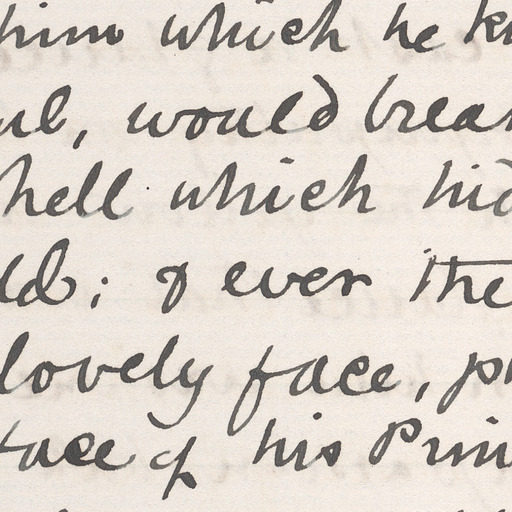 him which he kn
ul, would break
hell which hid
ld; & ever the
lovely face, pr
face of his Prin